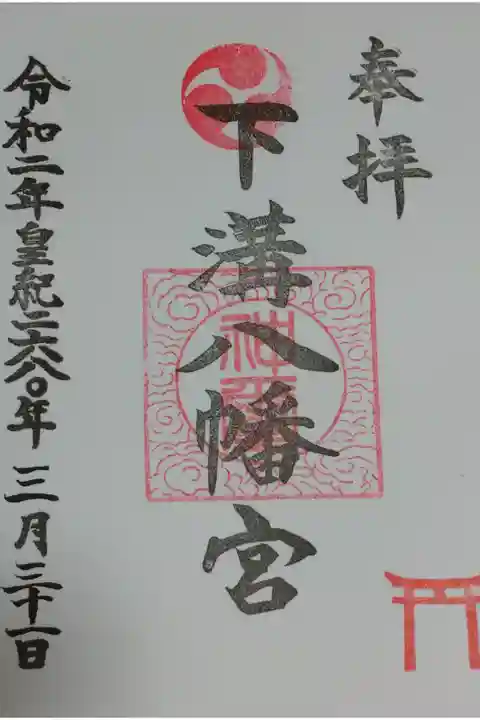 奉拝
下溝八幡宮
令和二年皇紀二六八〇年三月三十一日